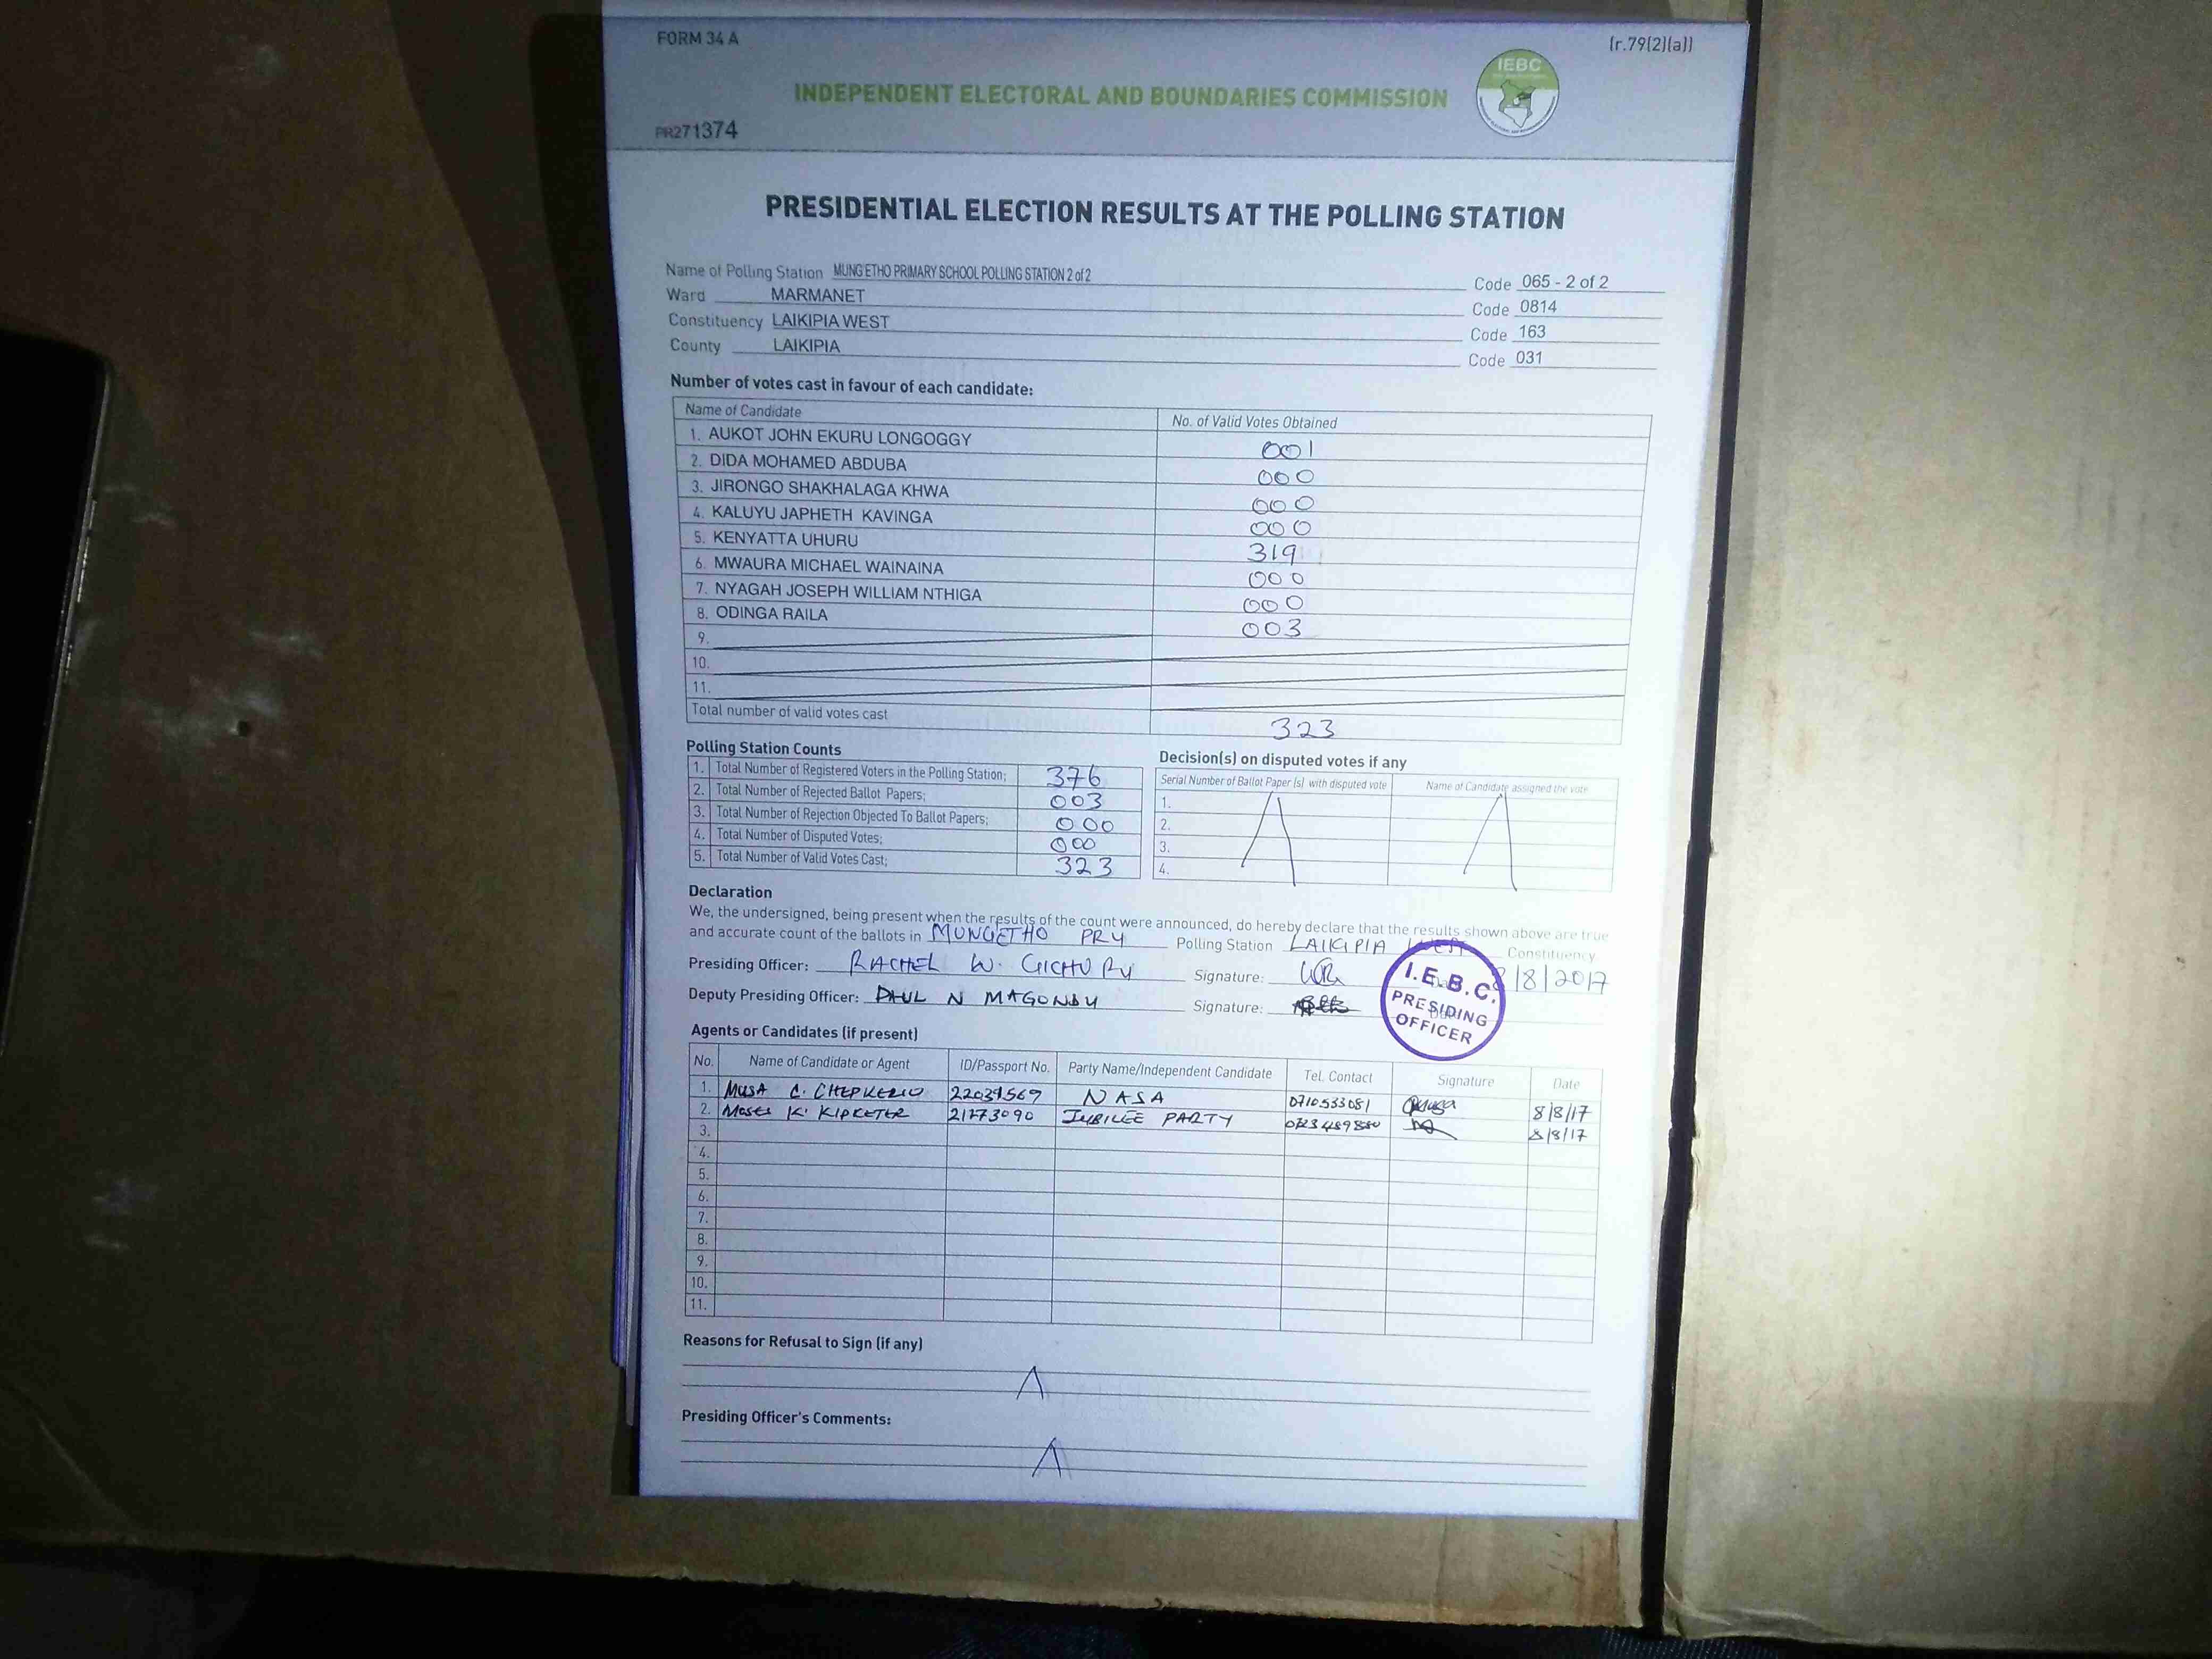 FORM 34 A
(r.79(2)(a))
IEBC
INDEPENDENT ELECTORAL AND BOUNDARIES COMMISSION
PR271374
PRESIDENTIAL ELECTION RESULTS AT THE POLLING STATION
Name of Polling Station MUNG'ETHO PRIMARY SCHOOL POLLING STATION 2 of 2 Code 065 - 2 of 2
Ward MARMANET Code 0814
Constituency LAIKIPIA WEST Code 163
County LAIKIPIA Code 031
Number of votes cast in favour of each candidate:
Name of Candidate No. of Valid Votes Obtained
1. AUKOT JOHN EKURU LONGOGGY 001
2. DIDA MOHAMED ABDUBA 000
3. JIRONGO SHAKHALAGA KHWA 000
4. KALUYU JAPHETH KAVINGA 000
5. KENYATTA UHURU 319
6. MWAURA MICHAEL WAINAINA 000
7. NYAGAH JOSEPH WILLIAM NTHIGA 000
8. ODINGA RAILA 003
9.
10.
11.
Total number of valid votes cast 323
Polling Station Counts
1. Total Number of Registered Voters in the Polling Station; 376
2. Total Number of Rejected Ballot Papers; 003
3. Total Number of Rejection Objected To Ballot Papers; 000
4. Total Number of Disputed Votes; 000
5. Total Number of Valid Votes Cast; 323
Decision(s) on disputed votes if any
Serial Number of Ballot Paper (s) with disputed vote Name of Candidate assigned the vote
1.
2.
3.
4.
Declaration
We, the undersigned, being present when the results of the count were announced, do hereby declare that the results shown above are true
and accurate count of the ballots in MUNGETHO PRY Polling Station LAIKIPIA WEST Constituency
Presiding Officer: RACHEL W. GICHURU Signature: 8/8/2017
Deputy Presiding Officer: PAUL N MAGONDU Signature:
I.E.B.C.
PRESIDING
OFFICER
Agents or Candidates (if present)
No. Name of Candidate or Agent ID/Passport No. Party Name/Independent Candidate Tel. Contact Signature Date
1. MUSA C. NASA 0710533081 8/8/17
2. MOSES K. KIPKETER 21773090 JUBILEE PARTY 8/8/17
3.
4.
5.
6.
7.
8.
9.
10.
11.
Reasons for Refusal to Sign (if any)
Presiding Officer's Comments: